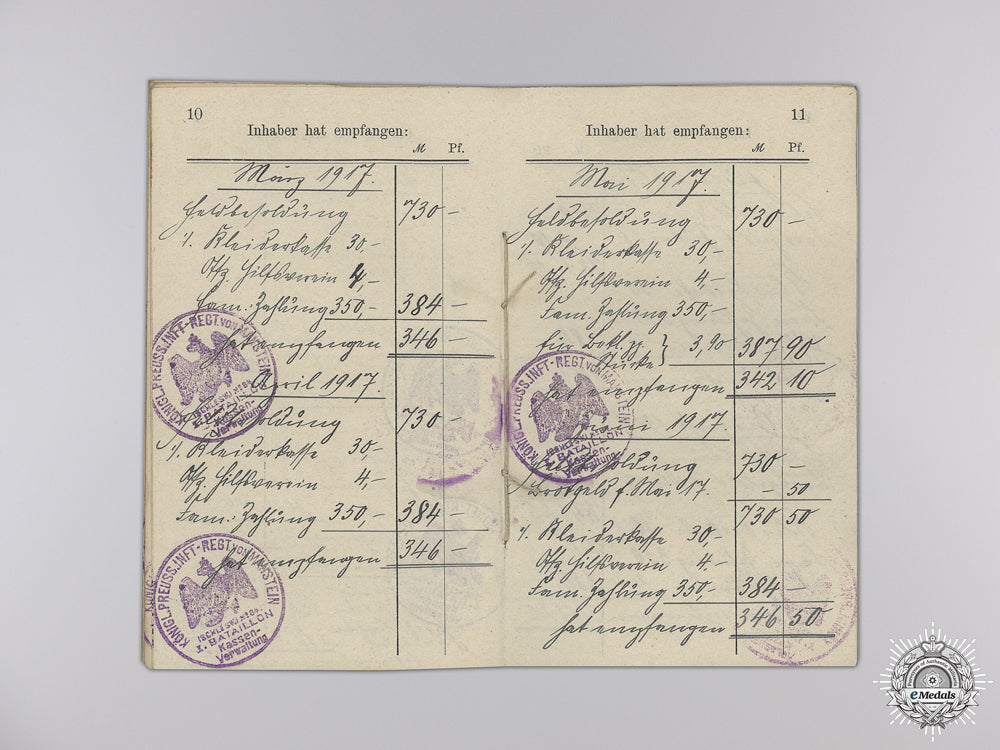 10
Inhaber hat empfangen:
M Pf.
März 1917.
Feldbesoldung 730 –
./. Kleiderkasse 30,–
Offz. Hilfsverein 4,–
Fam. Zahlung 350,– 384 –
hat empfangen 346 –
April 1917.
Feldbesoldung 730 –
./. Kleiderkasse 30,–
Offz. Hilfsverein 4,–
Fam. Zahlung 350,– 384 –
hat empfangen 346 –
KÖNIGL. PREUSS. INFT-REGT. VON MANSTEIN
(SCHLESW.) No 84.
I. BATAILLON
Kassen-
Verwaltung
KÖNIGL. PREUSS. INFT-REGT. VON MANSTEIN
(SCHLESW.) No 84.
I. BATAILLON
Kassen-
Verwaltung
11
Inhaber hat empfangen:
M Pf.
Mai 1917.
Feldbesoldung 730 –
./. Kleiderkasse 30,–
Offz. Hilfsverein 4,–
Fam. Zahlung 350,–
für Bekl.
Stücke } 3,90 387 90
hat empfangen 342 10
1917.
Feldbesoldung 730 –
Brotgeld f. Mai 17. – 50
730 50
./. Kleiderkasse 30,–
Offz. Hilfsverein 4.–
Fam. Zahlung 350,– 384 –
hat empfangen 346 50
KÖNIGL. PREUSS. INFT-REGT. VON MANSTEIN
(SCHLESW.) No 84.
I. BATAILLON
Kassen-
Verwaltung
eMedals